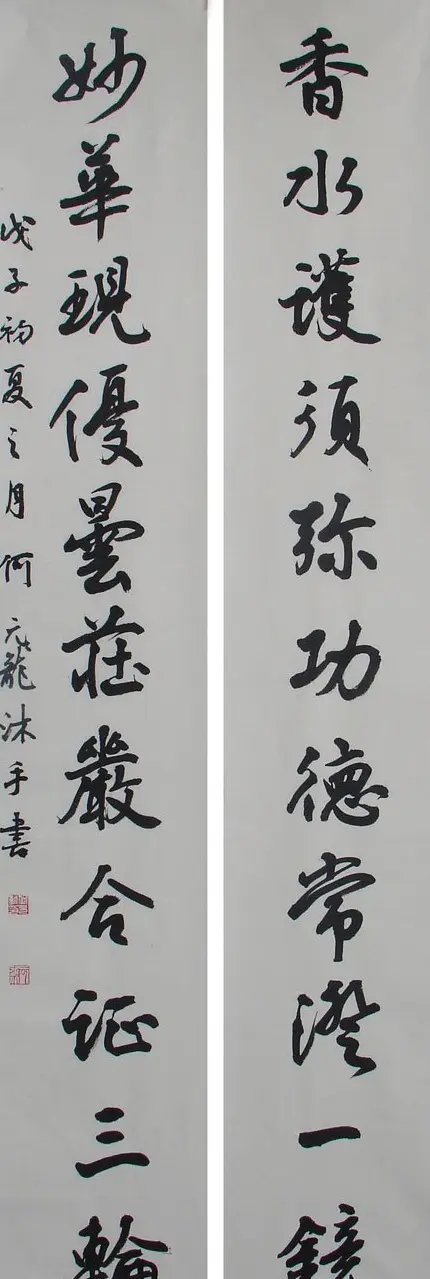 香水護須弥功德常澄一鏡
妙華現優曇莊嚴合証三輪
戊子初夏之月何元龍沐手書